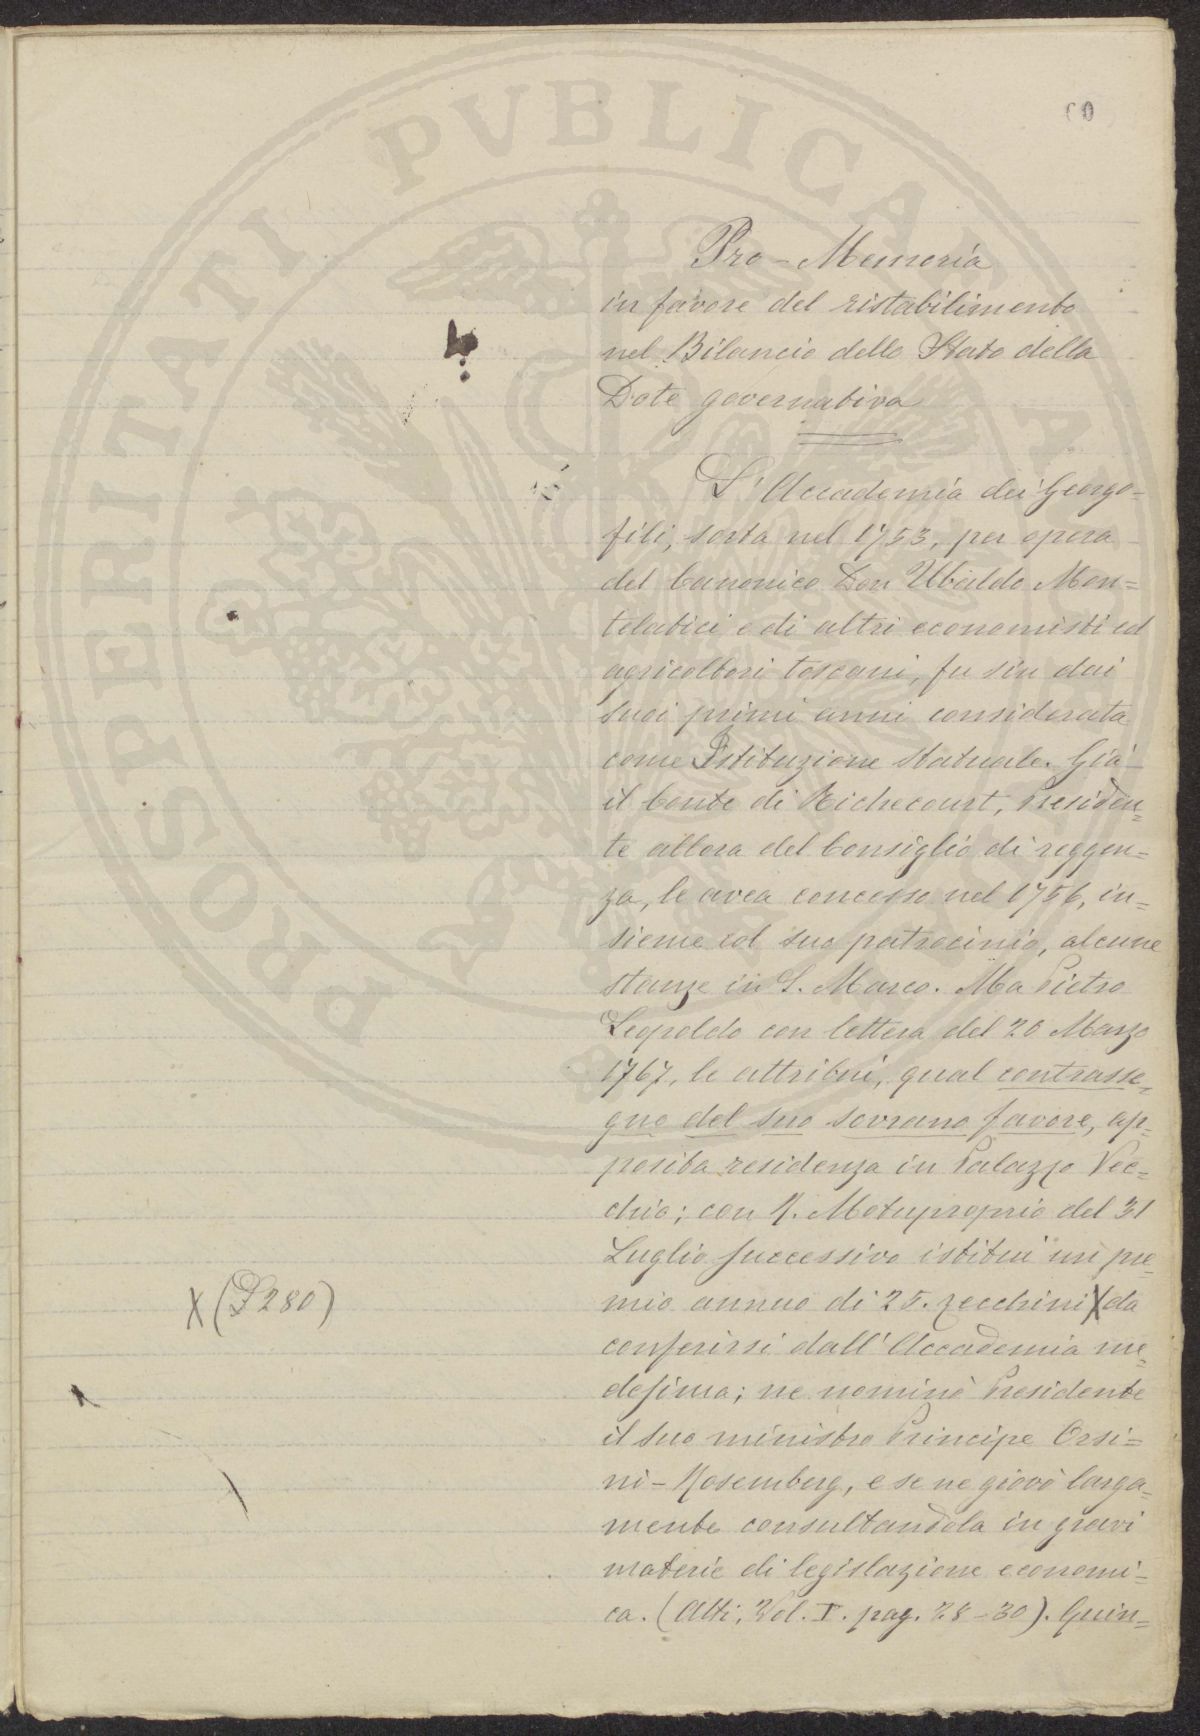 60
PROSPERITATI PVBLICAE A
Pro-Memoria
in favore del ristabilimento
nel Bilancio dello Stato della
Dote governativa
L'Accademia dei Georgo=
fili, sorta nel 1753, per opera
del Canonico Don Ubaldo Mon=
telatici e di altri economisti ed
agricoltori toscani, fu sin dai
suoi primi anni considerata
come Istituzione statuale. Già
il Conte di Richecourt, Presiden=
te allora del Consiglio di reggen=
za, le avea concesso nel 1756, in=
sieme col suo patrocinio, alcune
stanze in S. Marco. Ma Pietro
Leopoldo con lettera del 20 Marzo
1767, le attribuì, qual contrasse=
gno del suo sovrano favore, ap=
posita residenza in Palazzo Vec=
chio; con R. Motuproprio del 31
Luglio successivo istituì un pre=
mio annuo di 25. zecchini X da
X (£280)
conferirsi dall'Accademia me=
desima; ne nominò Presidente
il suo ministro Principe Orsi=
ni-Rosemberg, e se ne giovò larga=
mente consultandola in gravi
materie di legislazione economi=
ca. (Atti, Vol. I. pag. 28-30). Quin=